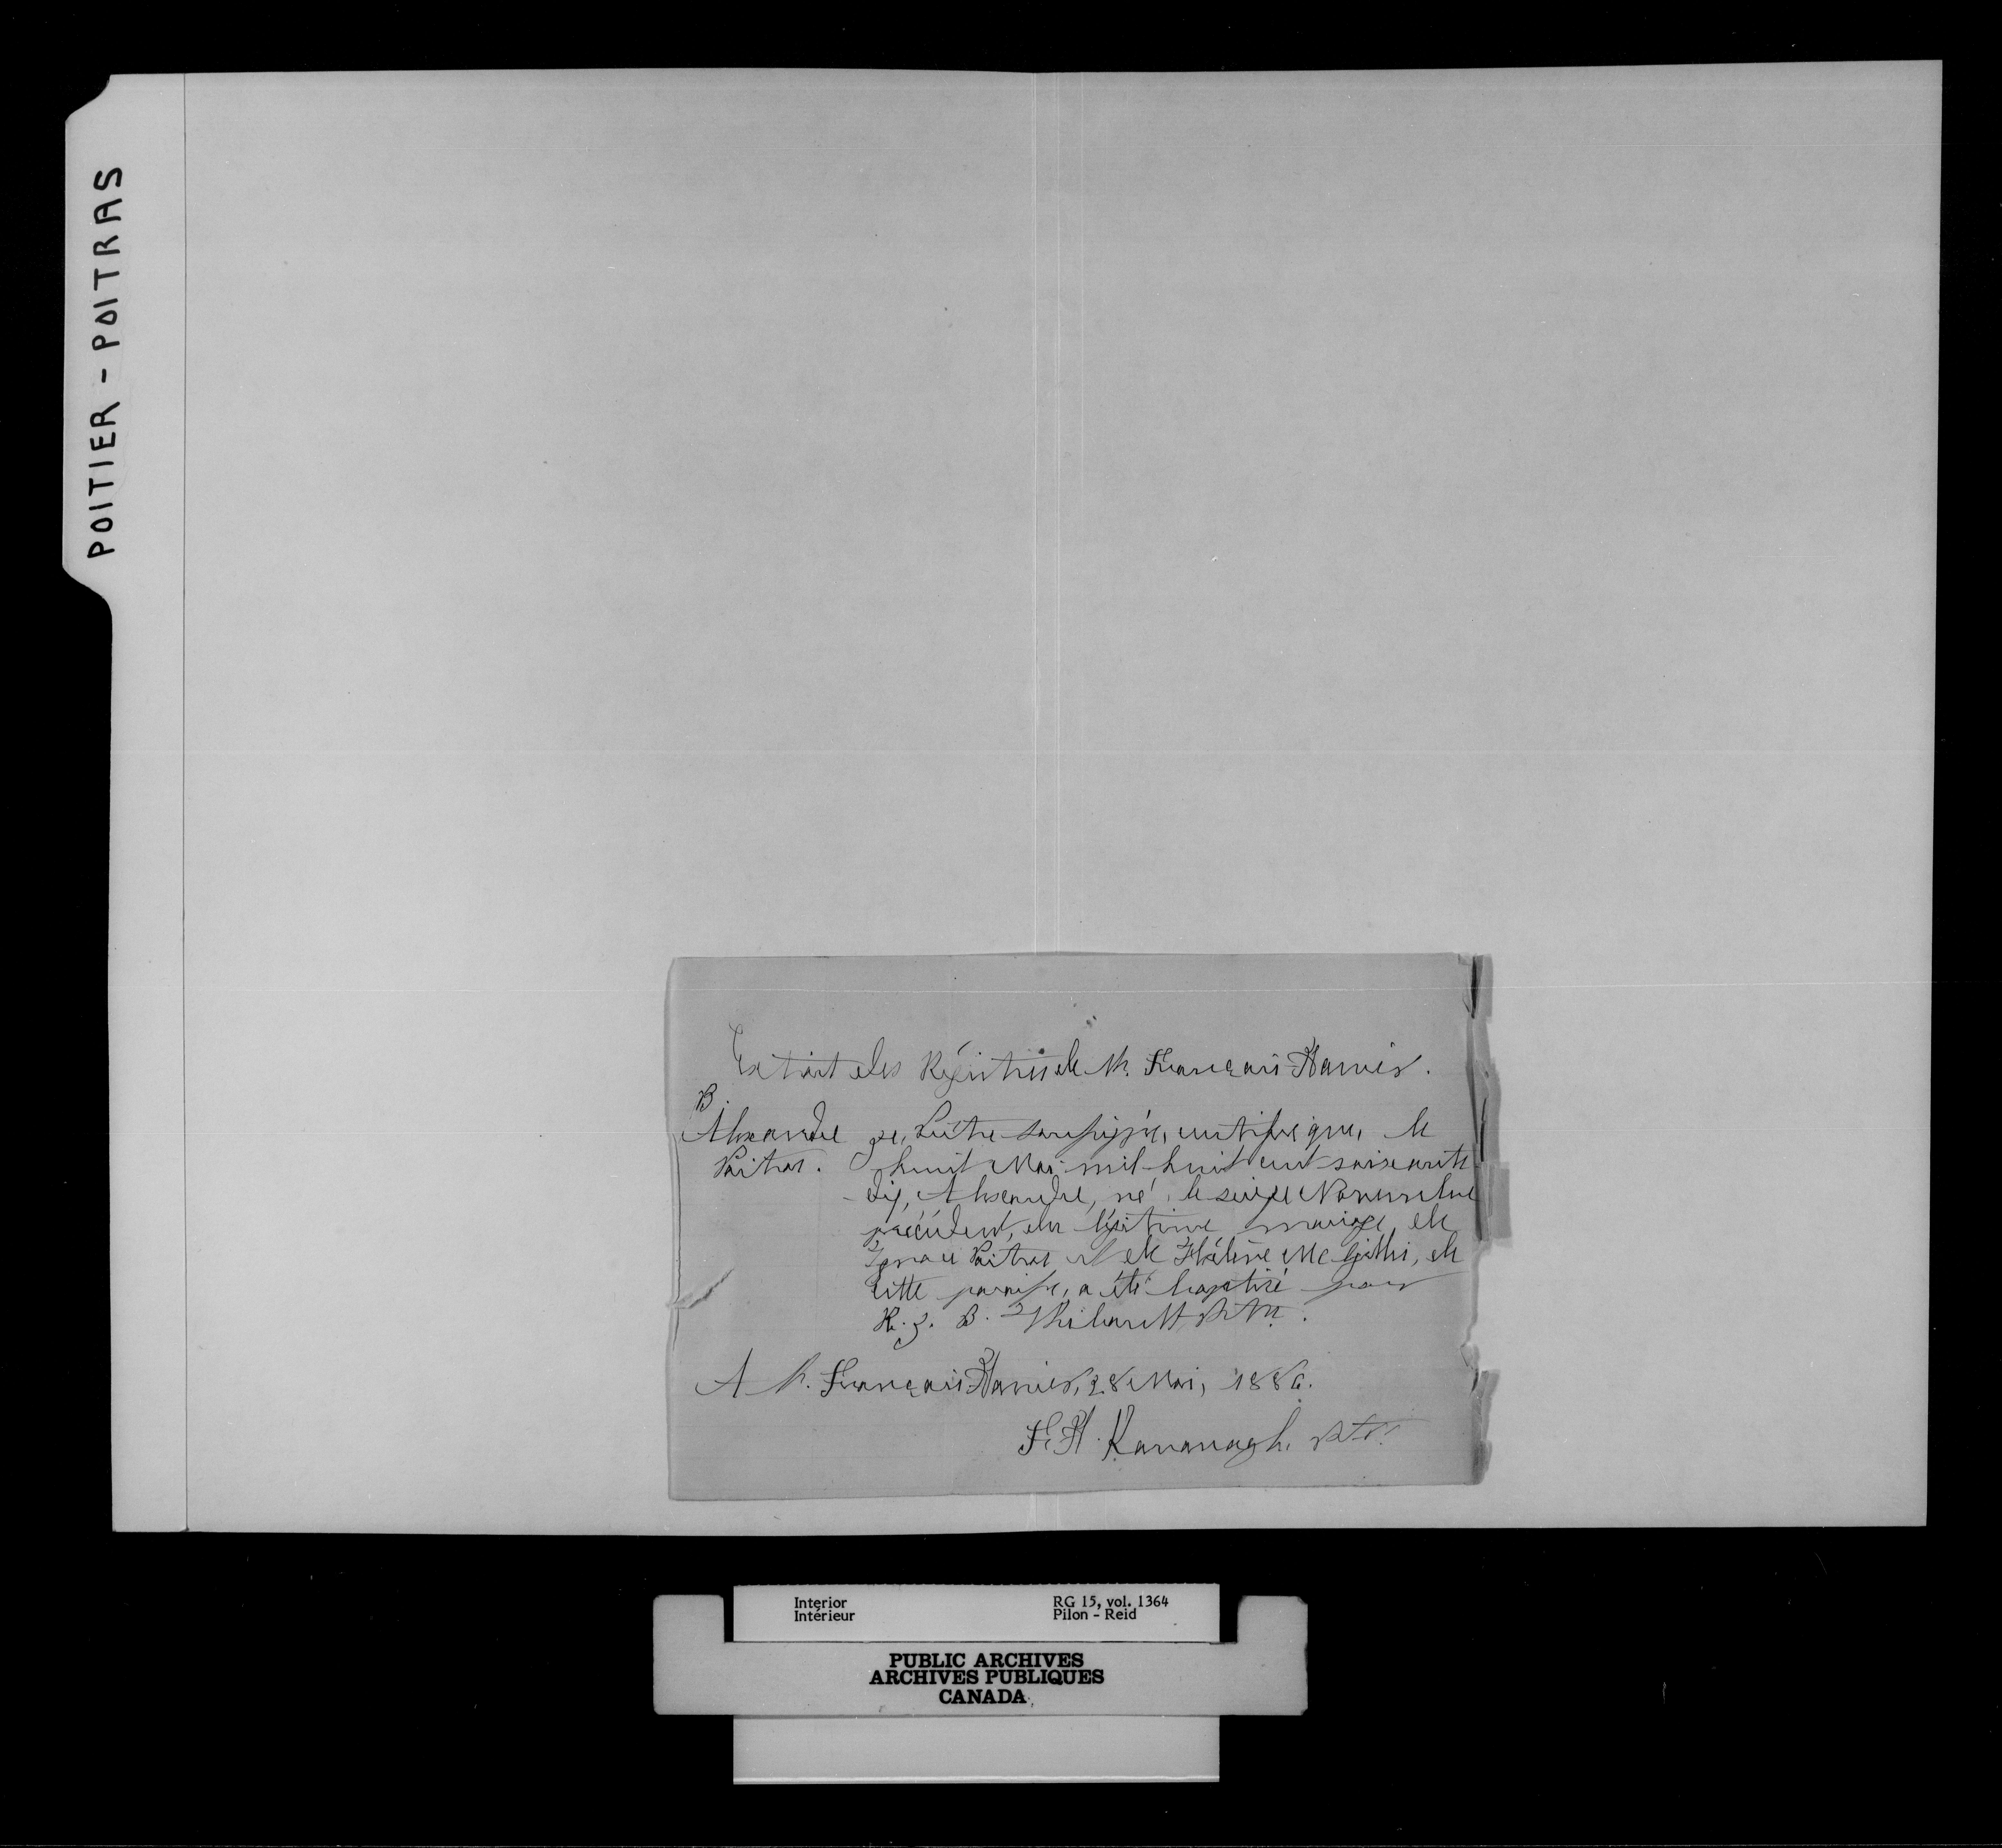 POITIER - POITRAS
Extrait des Régistres de St. François-Xavier.
B.
Alexandre Je, Prêtre soussigné, certifie que, le
Poitras. huit Mai mil huit cent soixante
dix, Alexandre, né le seize Novembre
précédent, du légitime mariage de
Ignace Poitras et de Hélène Mc Gillis, de
cette paroisse, a été baptisé par
R. J. B. Thibault Ptre.
A St. François Xavier, 28 Mai, 1886.
F. X. Kavanagh, Ptre.
Interior RG 15, vol. 1364
Intérieur Pilon - Reid
PUBLIC ARCHIVES
ARCHIVES PUBLIQUES
CANADA